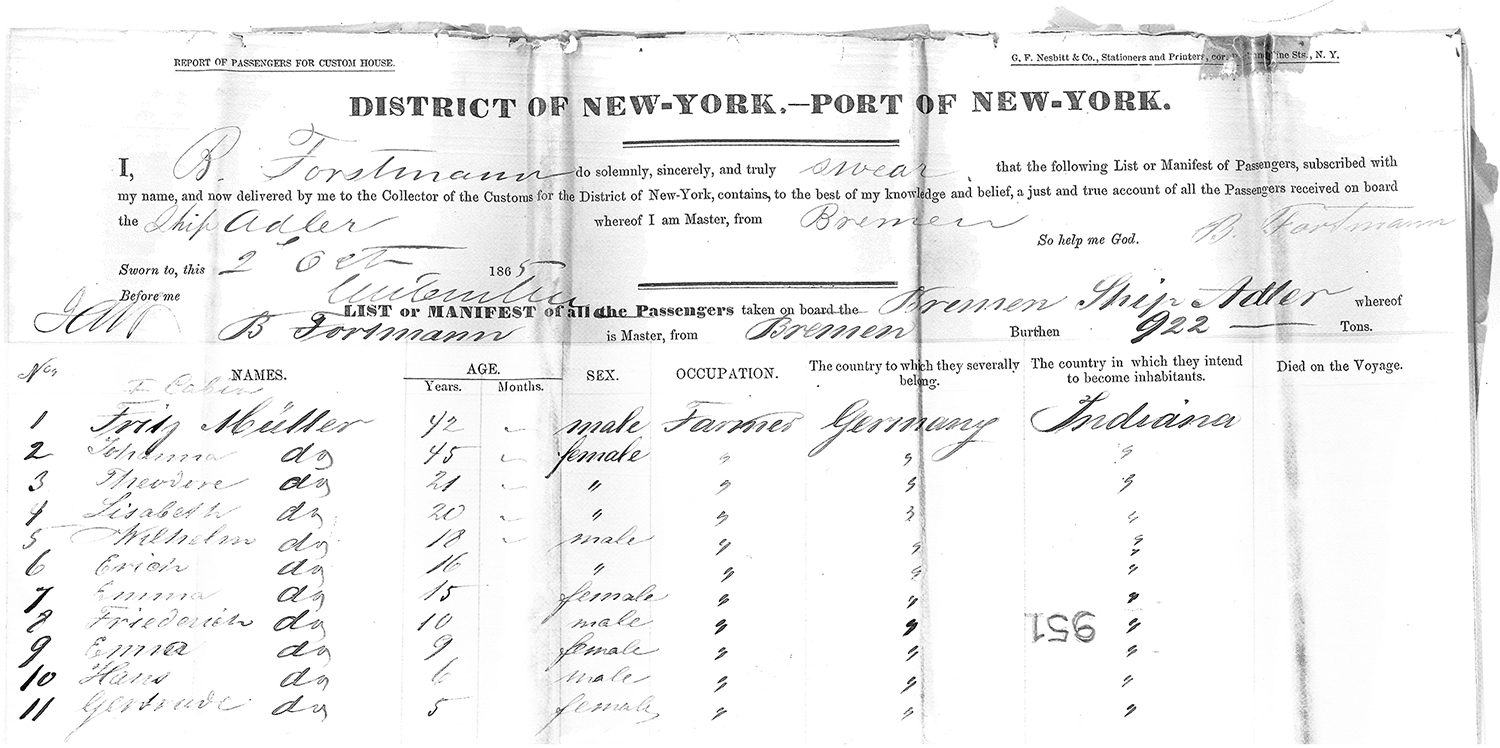 REPORT OF PASSENGERS FOR CUSTOM HOUSE.
G. F. Nesbitt & Co., Stationers and Printers, cor. ine Sts., N. Y.
DISTRICT OF NEW-YORK.—PORT OF NEW-YORK.
I, B. Forstmann do solemnly, sincerely, and truly swear, that the following List or Manifest of Passengers, subscribed with
my name, and now delivered by me to the Collector of the Customs for the District of New-York, contains, to the best of my knowledge and belief, a just and true account of all the Passengers received on board
the Ship Adler whereof I am Master, from Bremen
So help me God. B. Fortmann
Sworn to, this 2d Oct 1865
Before me
LIST or MANIFEST of all the Passengers taken on board the Bremen Ship Adler whereof
B Fortmann is Master, from Bremen Burthen 922 — Tons.
Nos NAMES. AGE. SEX. OCCUPATION. The country to which they severally belong. The country in which they intend to become inhabitants. Died on the Voyage.
Years. Months.
Cabin
1 Fritz Müller 42 " male Farmer Germany Indiana
2 Johanna do 45 " female " " "
3 Theodore do 21 " " " " "
4 Lisabeth do 20 " " " " "
5 Wilhelm do 18 " male " " "
6 Erich do 16 " " " "
7 Emma do 15 female " " "
8 Friederich do 10 male " " "
951
9 Emma do 9 female " " "
10 Hans do 6 male " " "
11 Gertrude do 5 female " " "